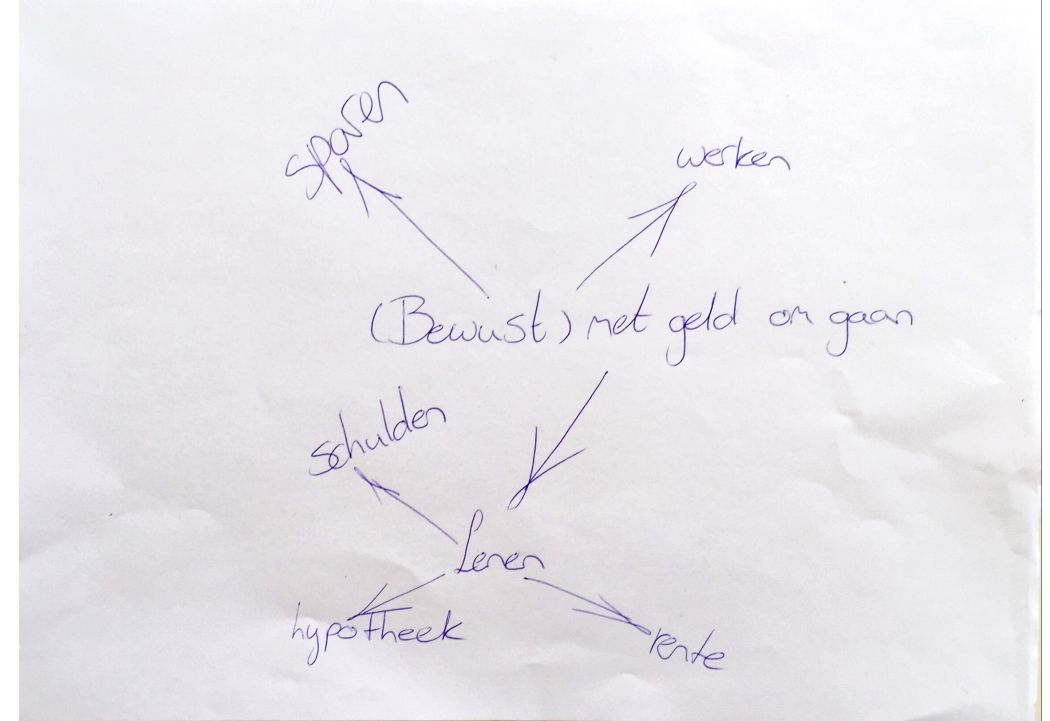 sparen
werken
(Bewust) met geld om gaan
schulden
Lenen
hypotheek
rente